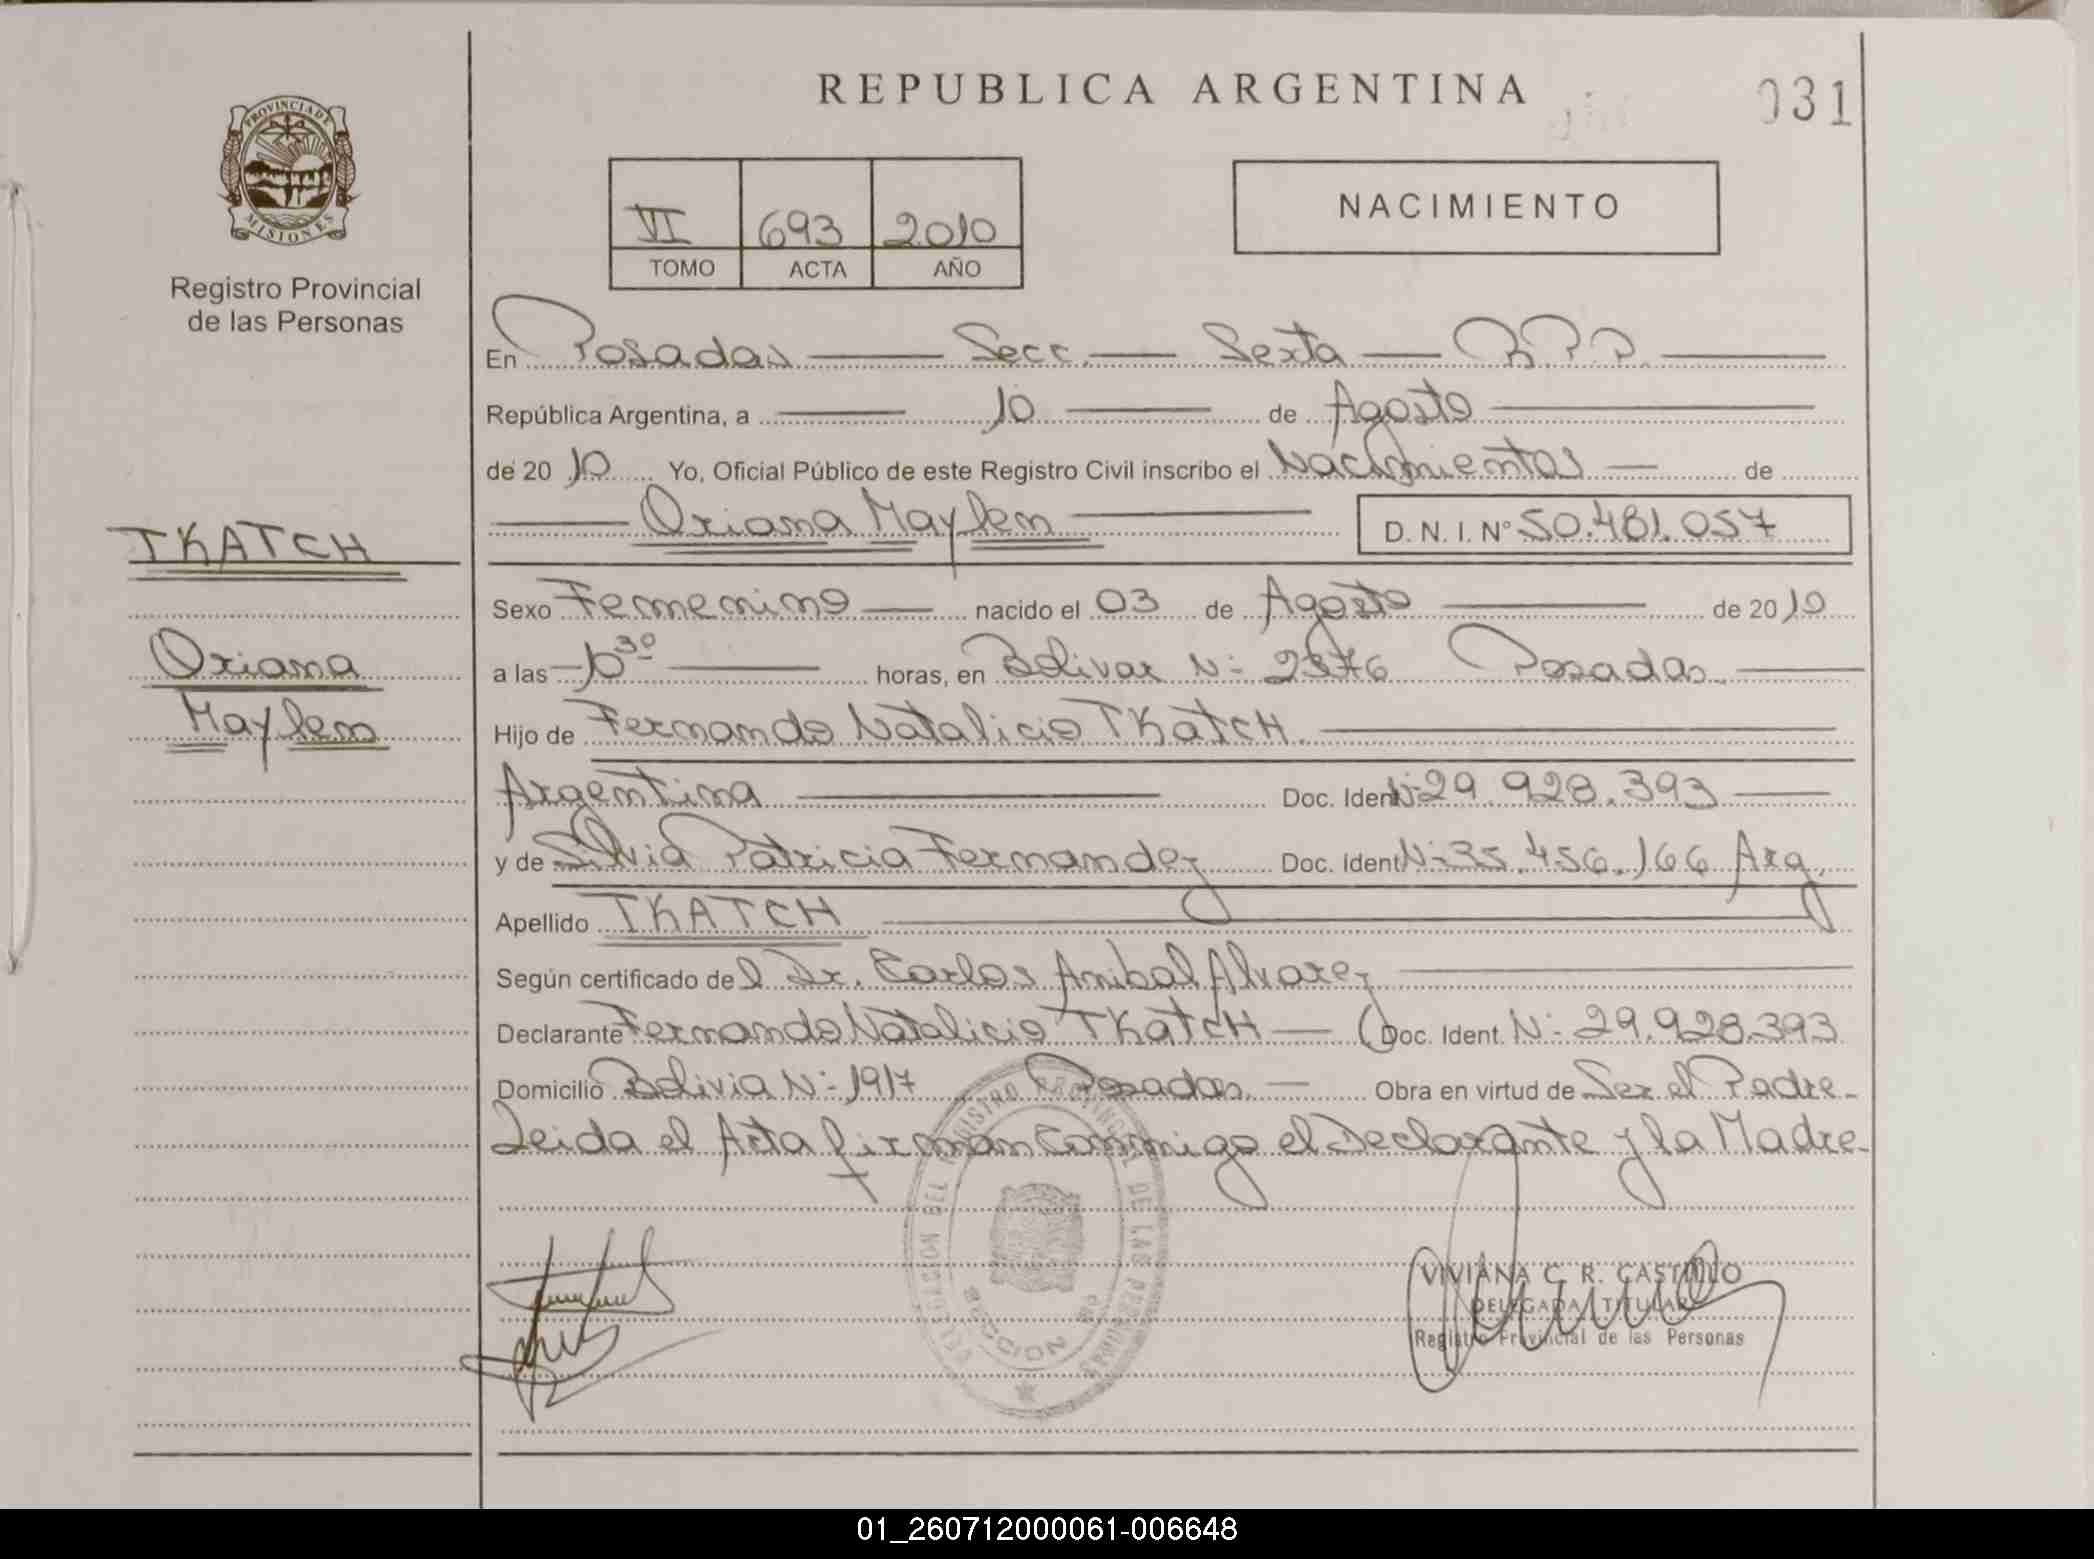 REPUBLICA ARGENTINA
031
PROVINCIA DE
MISIONES
Registro Provincial
de las Personas
VI 693 2010
TOMO ACTA AÑO
NACIMIENTO
En Posadas Secc. Sexta R.P.P.
República Argentina, a 10 de Agosto
de 20 10 Yo, Oficial Público de este Registro Civil inscribo el Nacimientos de
Oriana Maylen D. N. I. Nº 50.481.057
TKATCH
Oriana
Maylen
Sexo Femenino nacido el 03 de Agosto de 20 10
a las 10 30 horas, en Bolivar Nº 2376 Posadas.
Hijo de Fernando Natalicio TKatcH.
Argentina Doc. Ident. Nº 29.928.393
y de Silvia Patricia Fernandez Doc. Ident. Nº 35.456.166 Arg.
Apellido TKATCH
Según certificado de l Dr. Carlos Anibal Alvarez
Declarante Fernando Natalicio TKatcH Doc. Ident. Nº 29.928.393
Domicilio Bolivia Nº 1917 Posadas. Obra en virtud de Ser el Padre-
Leida el Acta firman Conmigo el Declarante y la Madre-
DELEGACION DEL REGISTRO PROVINCIAL DE LAS PERSONAS
SECCION
VIVIANA C. R. CASTILLO
DELEGADA TITULAR
Registro Provincial de las Personas
01_260712000061-006648